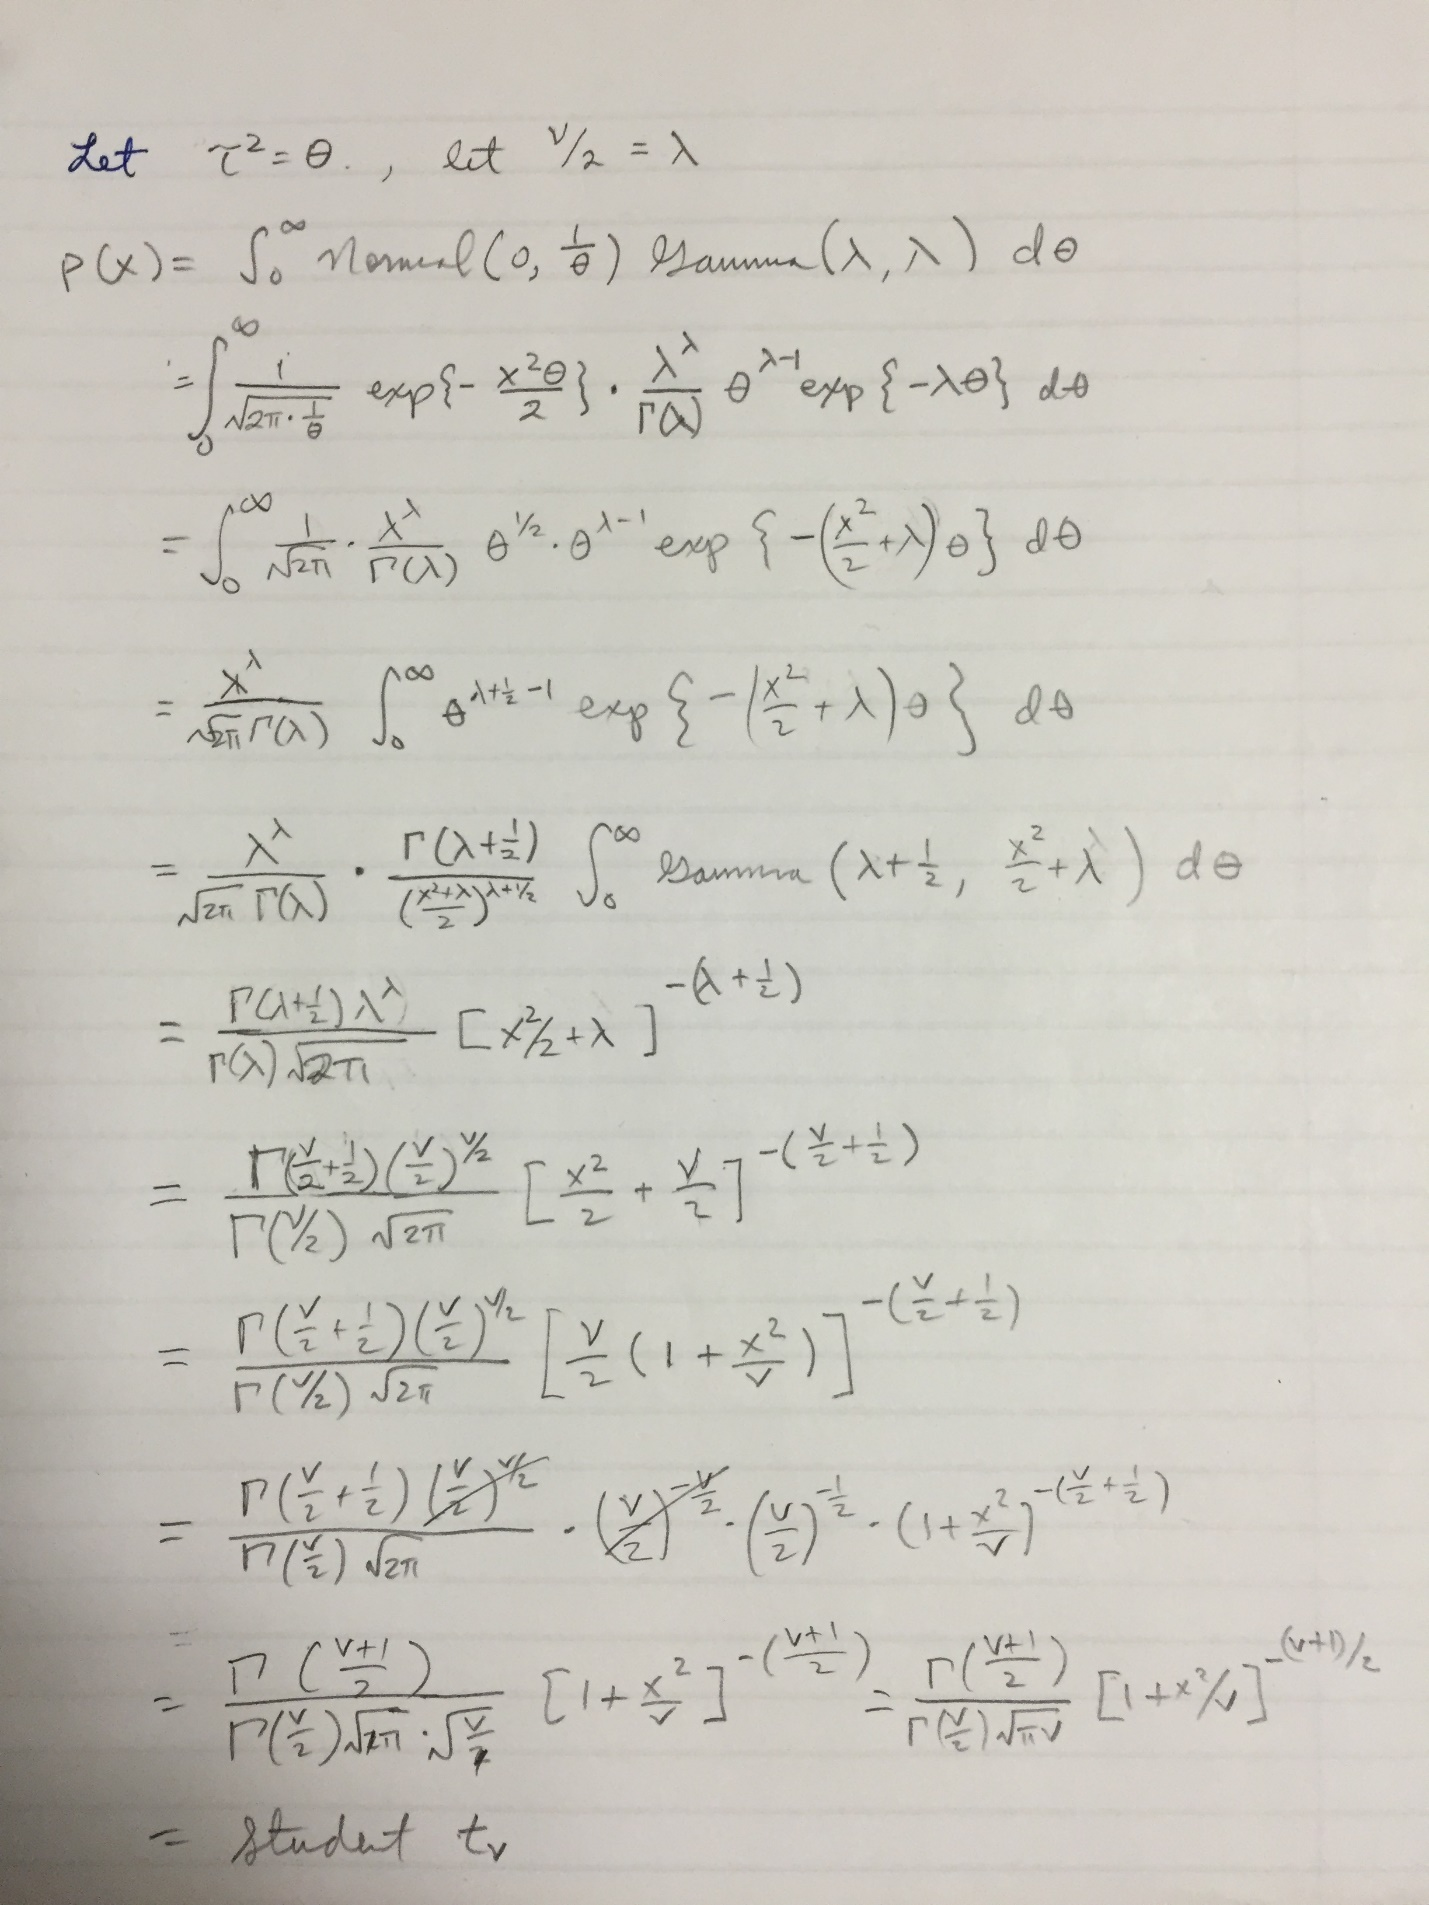 Let τ² = θ. , let ν/2 = λ
P(x) = ∫₀^∞ Normal(0, 1/θ) Gamma(λ, λ) dθ
= ∫₀^∞ 1/√(2π·1/θ) exp{- x²θ/2} · λ^λ/Γ(λ) θ^(λ-1) exp{-λθ} dθ
= ∫₀^∞ 1/√2π · λ^λ/Γ(λ) θ^(1/2) · θ^(λ-1) exp{-(x²/2 + λ)θ} dθ
= λ^λ/(√2π Γ(λ)) ∫₀^∞ θ^(λ+1/2-1) exp{-(x²/2 + λ)θ} dθ
= λ^λ/(√2π Γ(λ)) · Γ(λ+1/2)/((x²+λ)/2)^(λ+1/2) ∫₀^∞ Gamma(λ+1/2, x²/2 + λ) dθ
= Γ(λ+1/2) λ^λ/(Γ(λ) √2π) [x²/2 + λ]^-(λ+1/2)
= Γ(ν/2+1/2)(ν/2)^(ν/2)/(Γ(ν/2) √2π) [x²/2 + ν/2]^-(ν/2+1/2)
= Γ(ν/2+1/2)(ν/2)^(ν/2)/(Γ(ν/2) √2π) [ν/2 (1 + x²/ν)]^-(ν/2+1/2)
= Γ(ν/2+1/2)(ν/2)^(ν/2)/(Γ(ν/2) √2π) · (ν/2)^(-ν/2) · (ν/2)^(-1/2) · (1 + x²/ν)^-(ν/2+1/2)
= Γ((ν+1)/2)/(Γ(ν/2) √2π · √(ν/2)) [1 + x²/ν]^-((ν+1)/2) = Γ((ν+1)/2)/(Γ(ν/2) √πν) [1 + x²/ν]^-(ν+1)/2
= Student t_ν